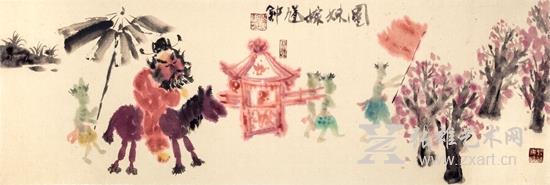 鍾馗嫁妹图
张雄艺术网
www.zxart.cn